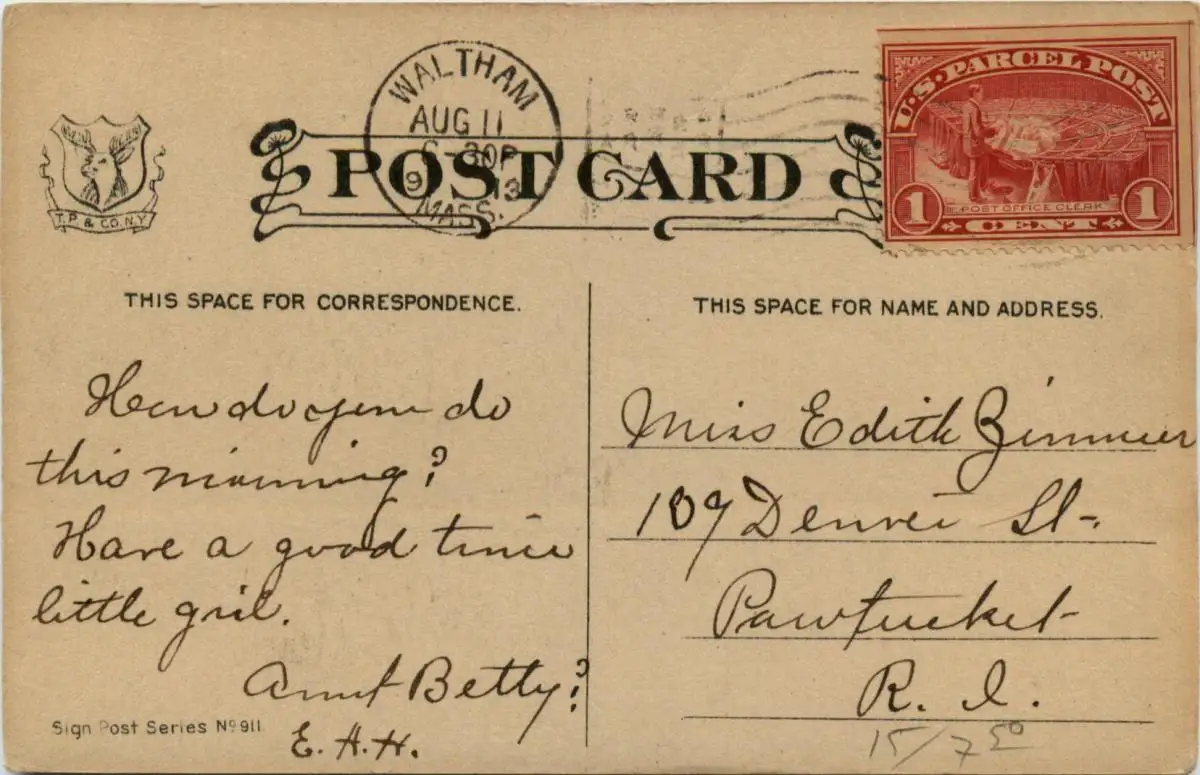 WALTHAM
AUG 11
6-30P
1913
MASS.
U.S. PARCEL POST
POST OFFICE CLERK
1 CENT 1
T.P. & CO. N.Y.
POST CARD
THIS SPACE FOR CORRESPONDENCE.
How do you do
this morning?
Have a good time
little girl.
Aunt Betty?
E. H. H.
Sign Post Series No 911
THIS SPACE FOR NAME AND ADDRESS.
Miss Edith Zimmer
109 Denver St.
Pawtucket
R. I.
15/7